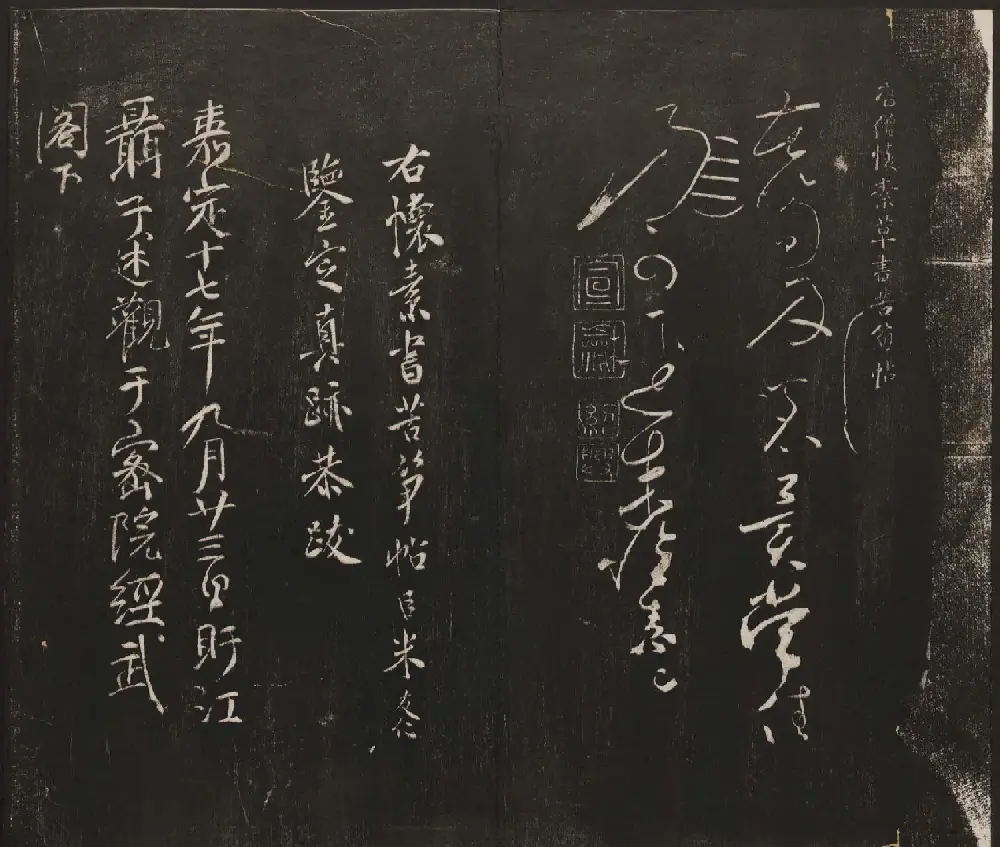 唐僧懷素草書苦筍帖
苦筍及茗異常佳
乃可逕來懷素上
宣
和
紹
興
右懷素書苦筍帖臣米友仁
鑒定真跡恭跋
嘉定十七年九月廿三日盱江
聶子述觀于密院經武
閣下